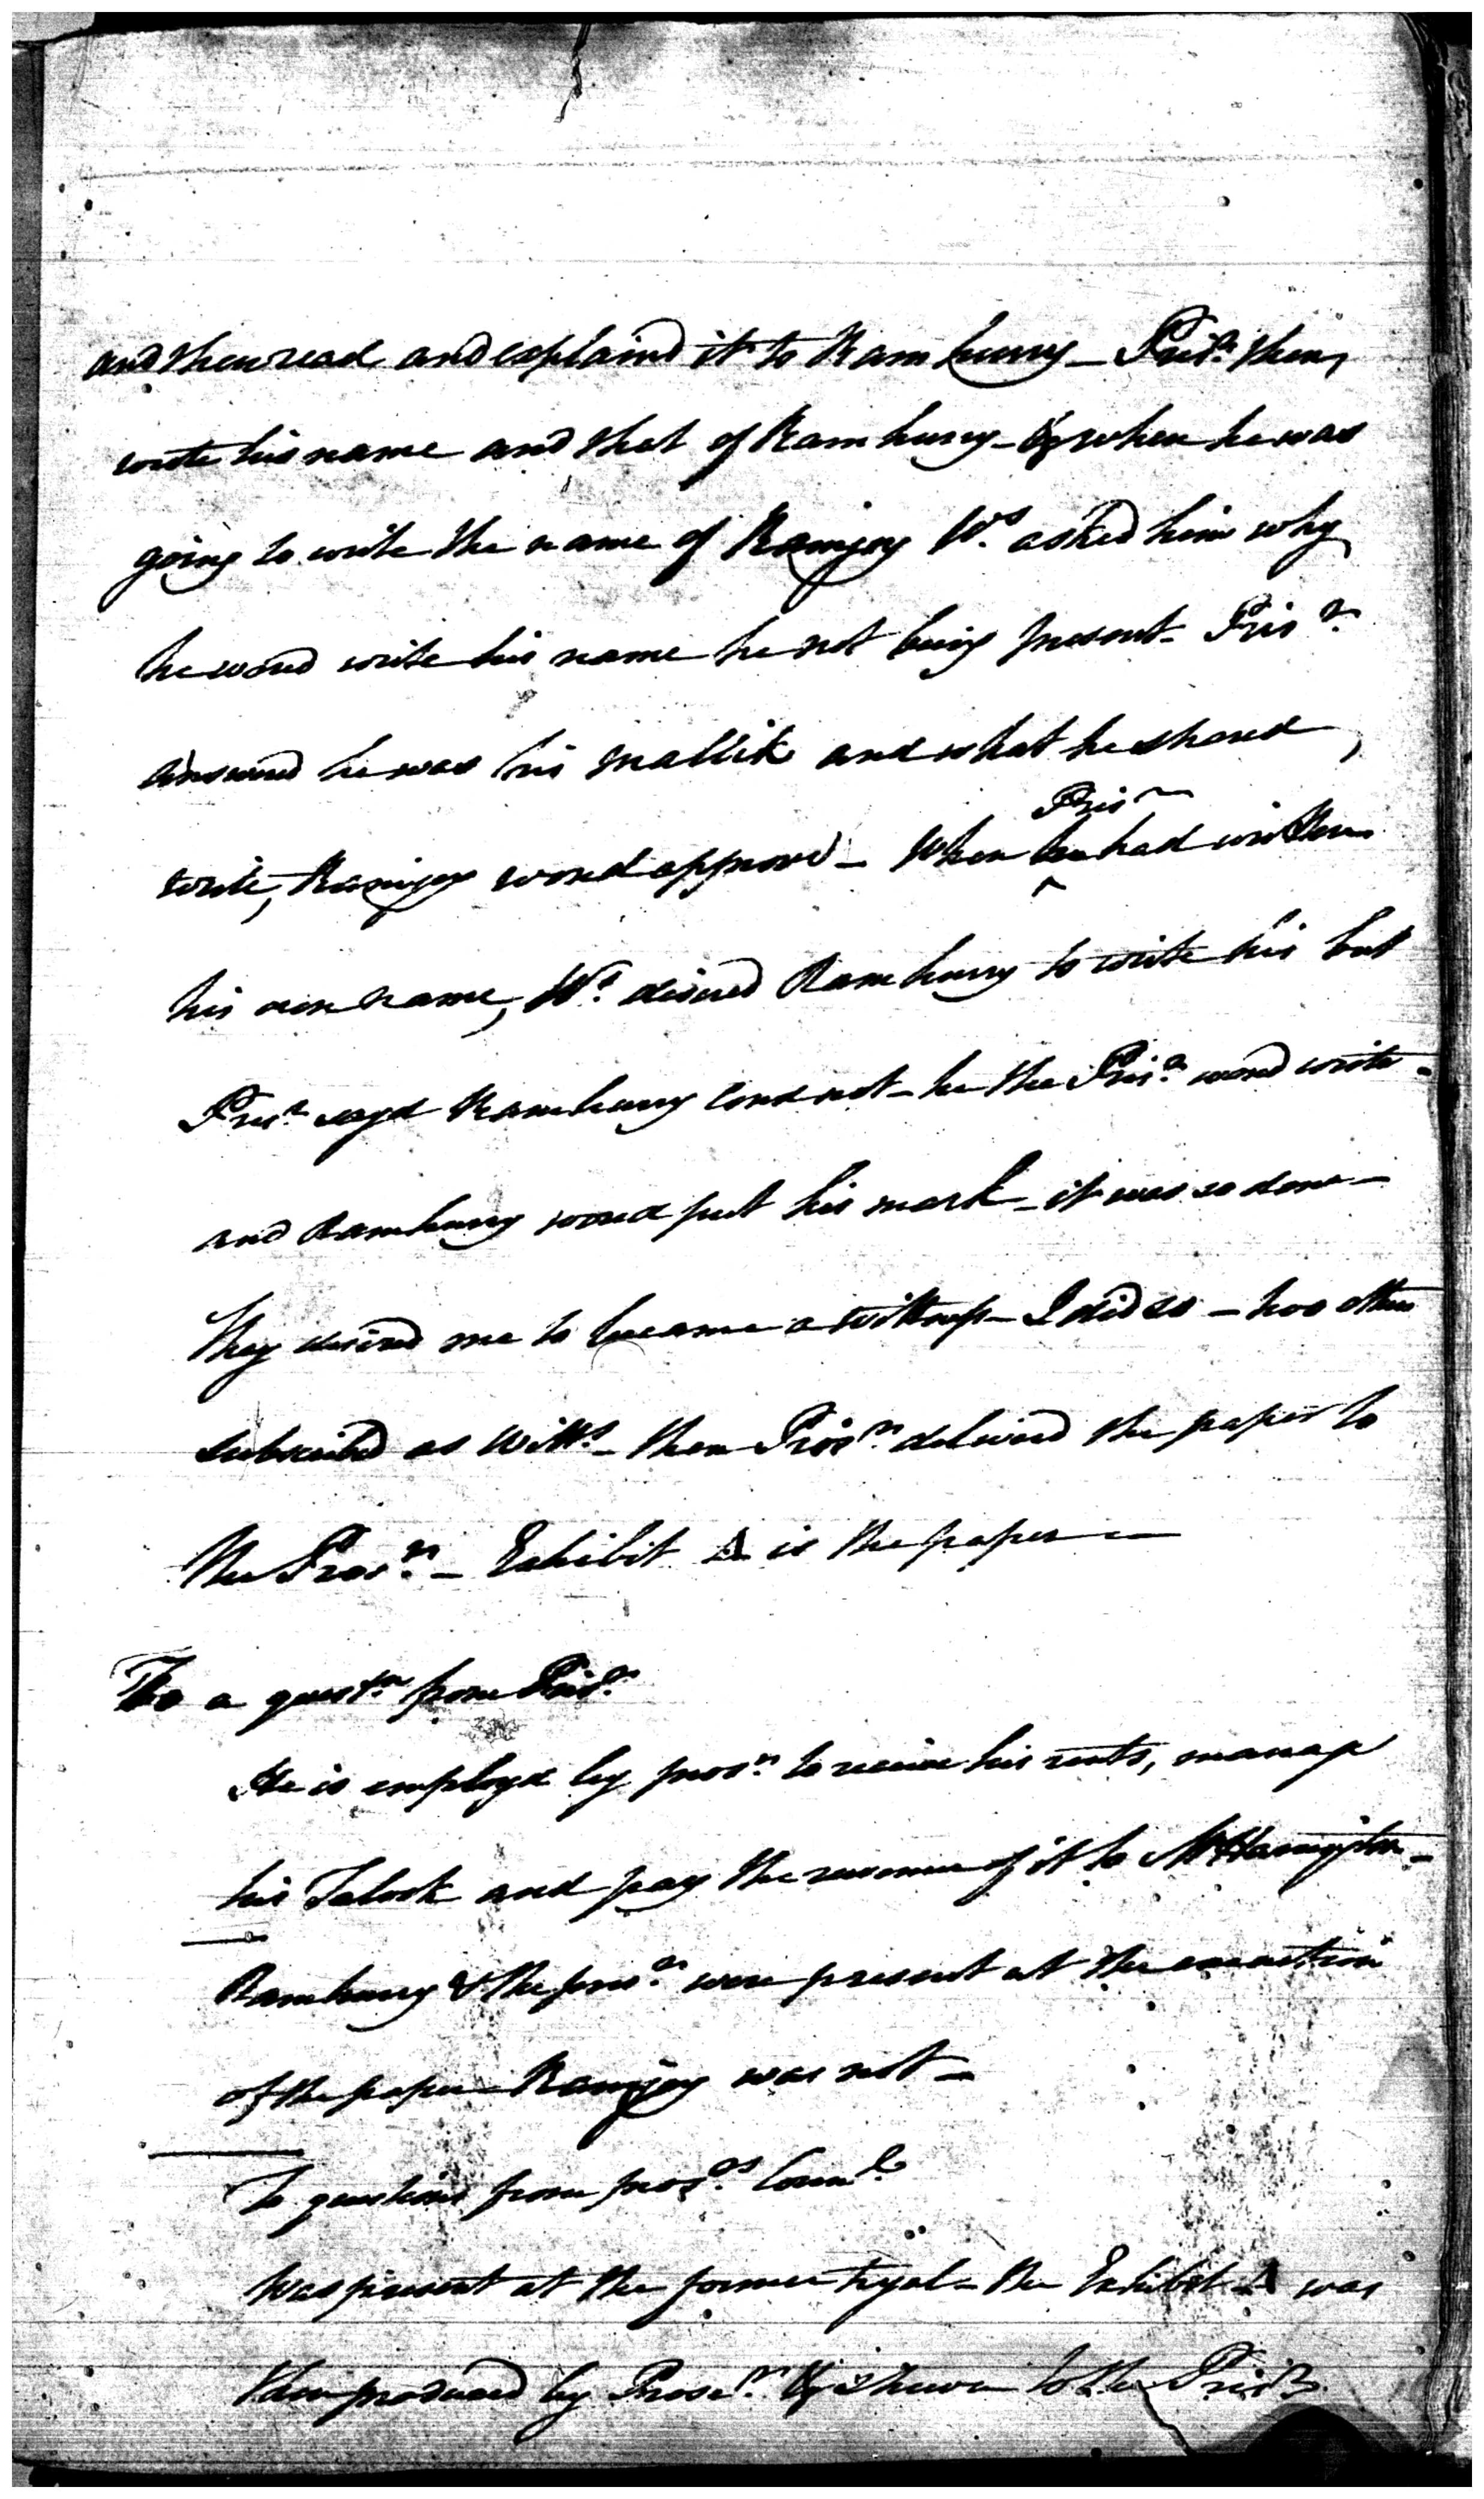 and then read and explaind it to Ramhurry — Prisr. then,
wrote his name and that of Ramhurry — & when he was
going to write the name of Ramjoy Ws. asked him why
he woud write his name he not being present — Prisr.
answered he was his Mallik and what he shoud,
write, Ramjoy woud approve — When he Prisr had written
his own name, Ws. desired Ramhurry to write his but
Prisr. sayd Ramhurry coud not — he the Prisr. woud write —
and Ramhurry woud put his mark — it was so done —
They desired me to became a wittness — I did so — two others
subscribed as Witts. — then Prisr. deliverd the paper to
the Prosr. — Exhibit A is the paper —
To a questn. from Prisr.
He is employd by prosr. to receive his rents, manage
his Talook and pay the revenue of it to Mr Harrington —
Ramhurry & the prisr. were present at the execution
of the paper — Ramjoy was not —
To questions from prosrs. Counl.
Was present at the former tryal — the Exhibit A was
then produced by Prosecr. & shewn to the Prisr.